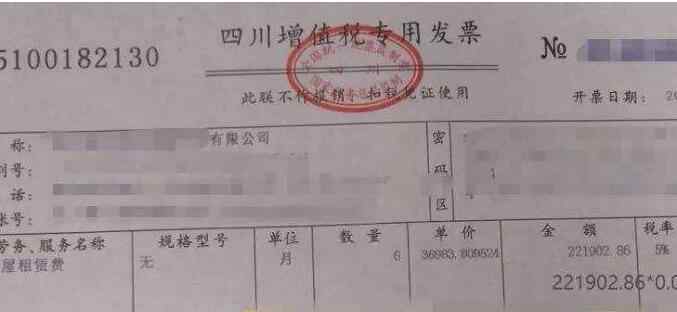 5100182130
四川增值税专用发票
№
四川
此联不作报销、扣税凭证使用
开票日期: 20
称:
有限公司
别号:
话:
账号:
密
码
区
劳务、服务名称 规格型号 单位 数量 单价 金额 税率
屋租赁费 无 月 6 36983.809524 221902.86 5%
221902.86*0.0